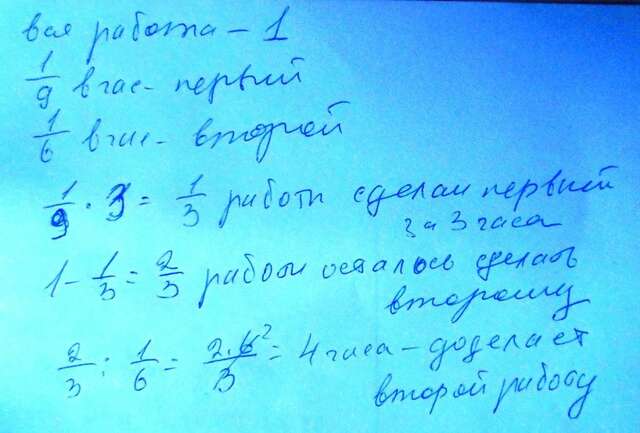 вся работа - 1
1/9 в час - первый
1/6 в час - второй
1/9 · 3 = 1/3 работы сделал первый
за 3 часа
1 - 1/3 = 2/3 работы осталось сделать
второму
2/3 : 1/6 = 2·6²/3 = 4 часа - доделает
второй работу